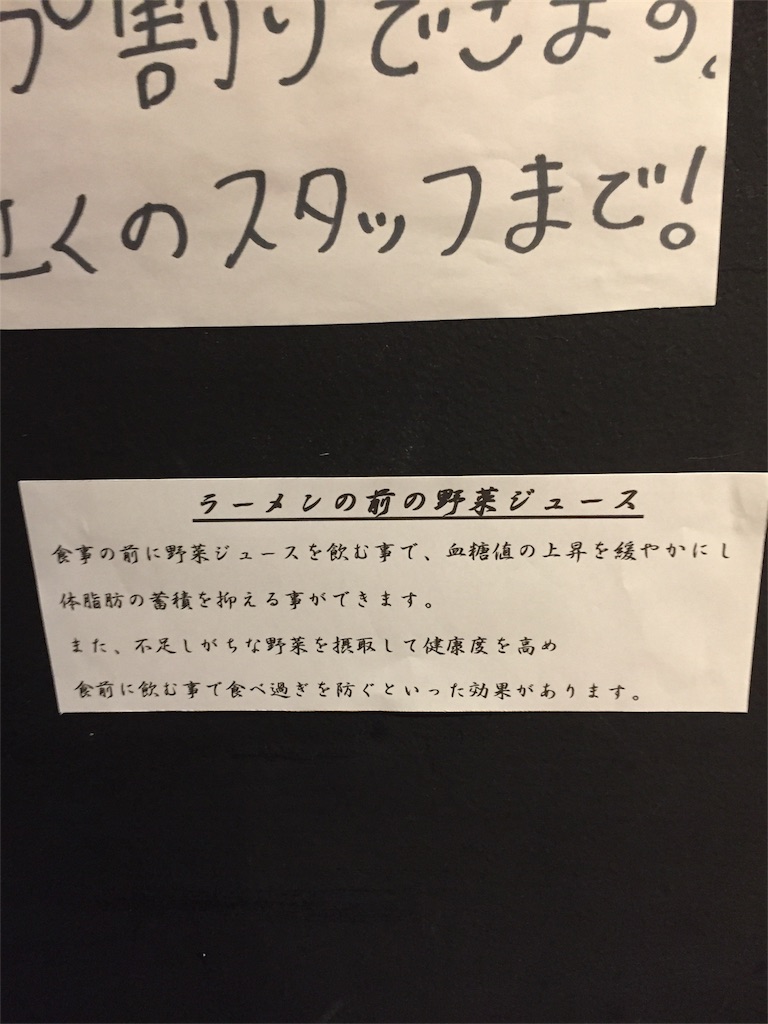 プ割りできます。
近くのスタッフまで!
ラーメンの前の野菜ジュース
食事の前に野菜ジュースを飲む事で、血糖値の上昇を緩やかにし
体脂肪の蓄積を抑える事ができます。
また、不足しがちな野菜を摂取して健康度を高め
食前に飲む事で食べ過ぎを防ぐといった効果があります。